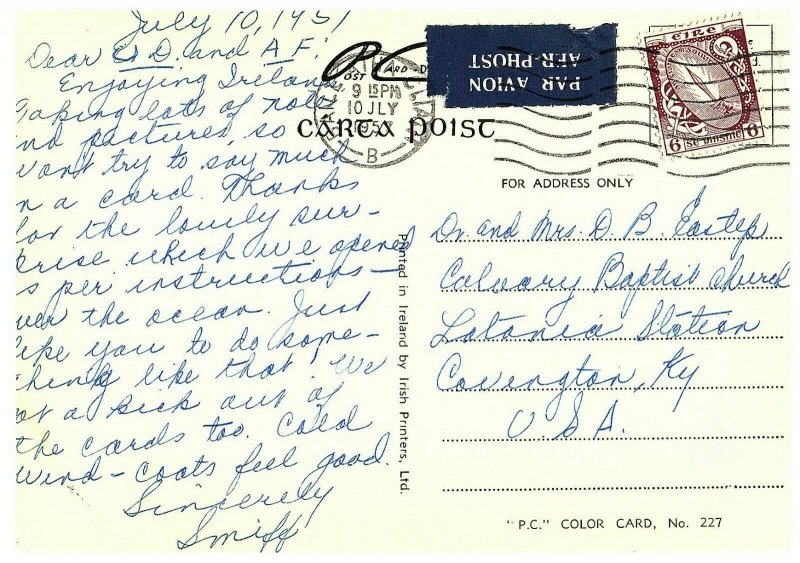 July 10, 1951
Dear D. and A F.
Enjoying Ireland.
Taking lots of notes
nd pictures, so
Won't try to say much
n a card. Thanks
for the lovely sur-
prise which we opened
s per instructions—
ver the ocean. Just
like you to do some-
thing like that! We
ot a kick out of
the cards too. Cold
Wind-coats feel good.
Sincerely
Smiff
9 15PM
10 JLY
B
PAR AVION
AER-PHOST
EIRE
6 6
CARTA POIST
FOR ADDRESS ONLY
Dr. and Mrs. D. B. Eastep
Calvary Baptist Church
Latonia Station
Covington, Ky
U.S.A.
Printed in Ireland by Irish Printers, Ltd.
"P.C." COLOR CARD, No. 227